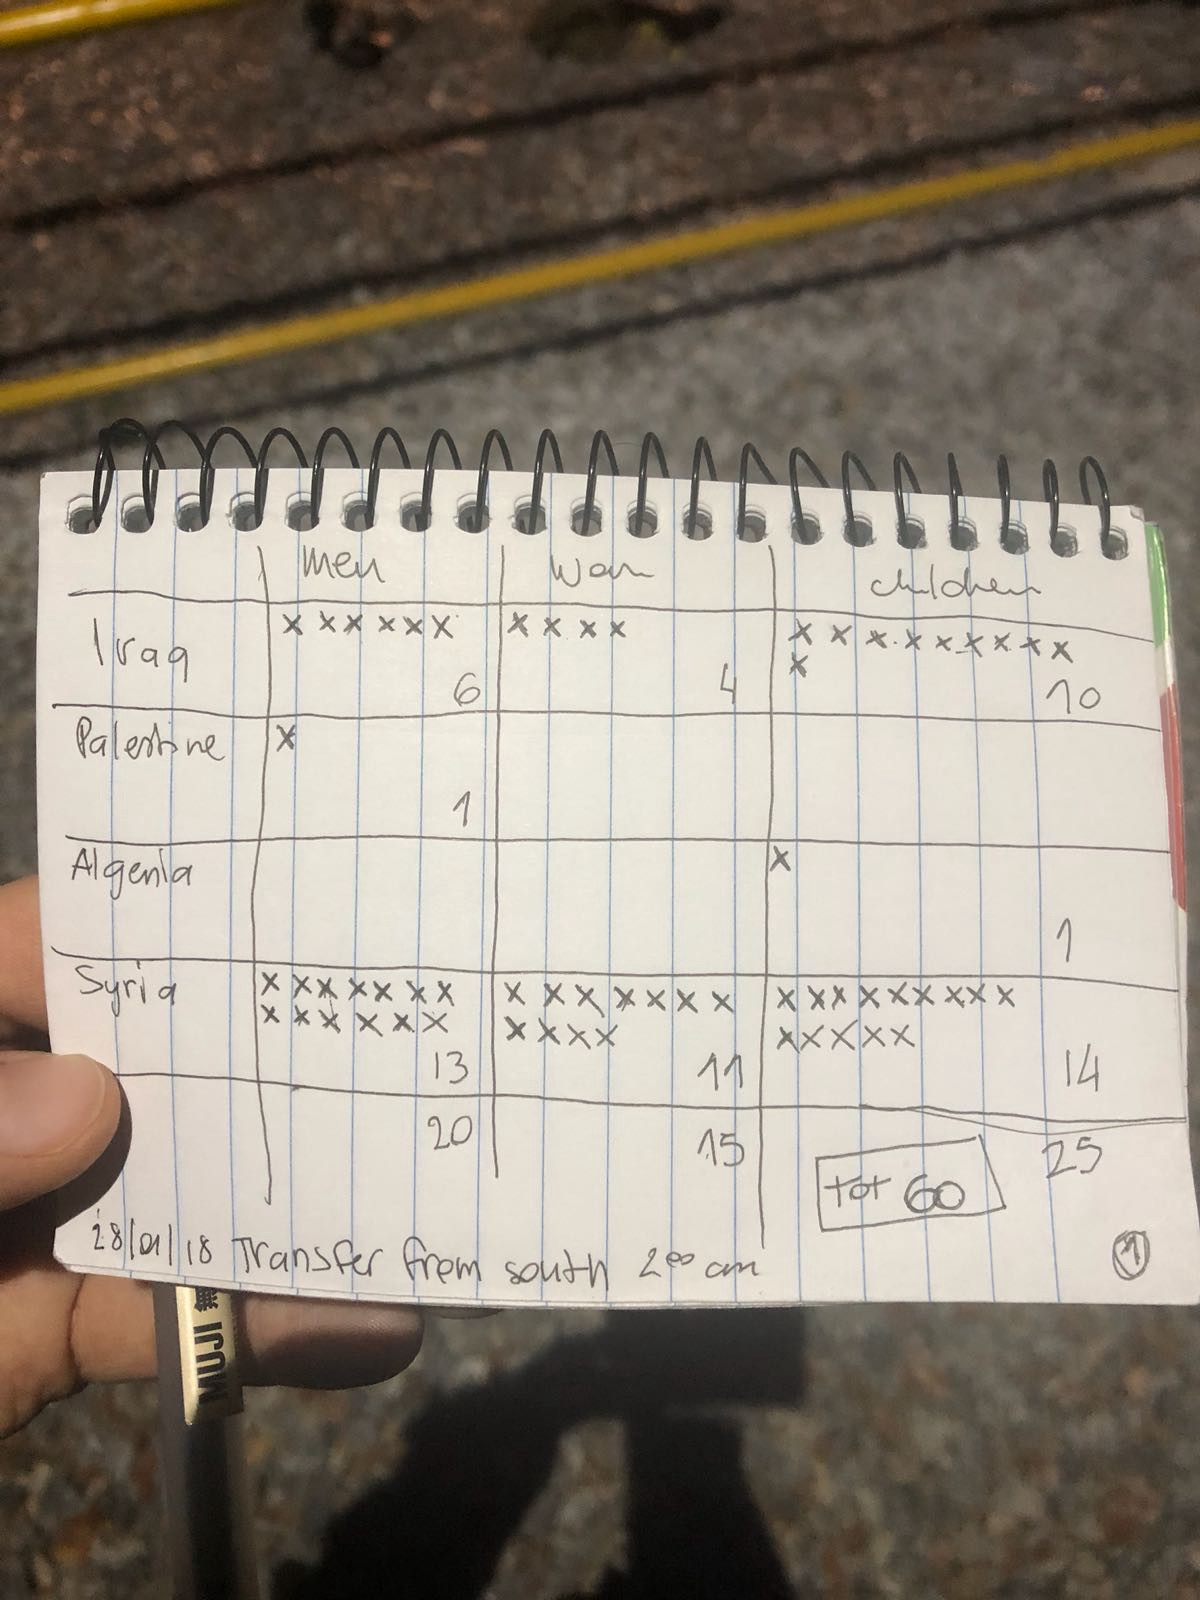 men wom children
Iraq x x x x x x x x x x x x x x x x x x x
x
6 4 10
Palestine x
1
Algeria x
1
Syria x x x x x x x x x x x x x x x x x x x x x x x
x x x x x x x x x x x x x x x
13 11 14
20 15 25
Tot 60
28/01/18 Transfer from south 2⁰⁰ am 1
MUJI 無